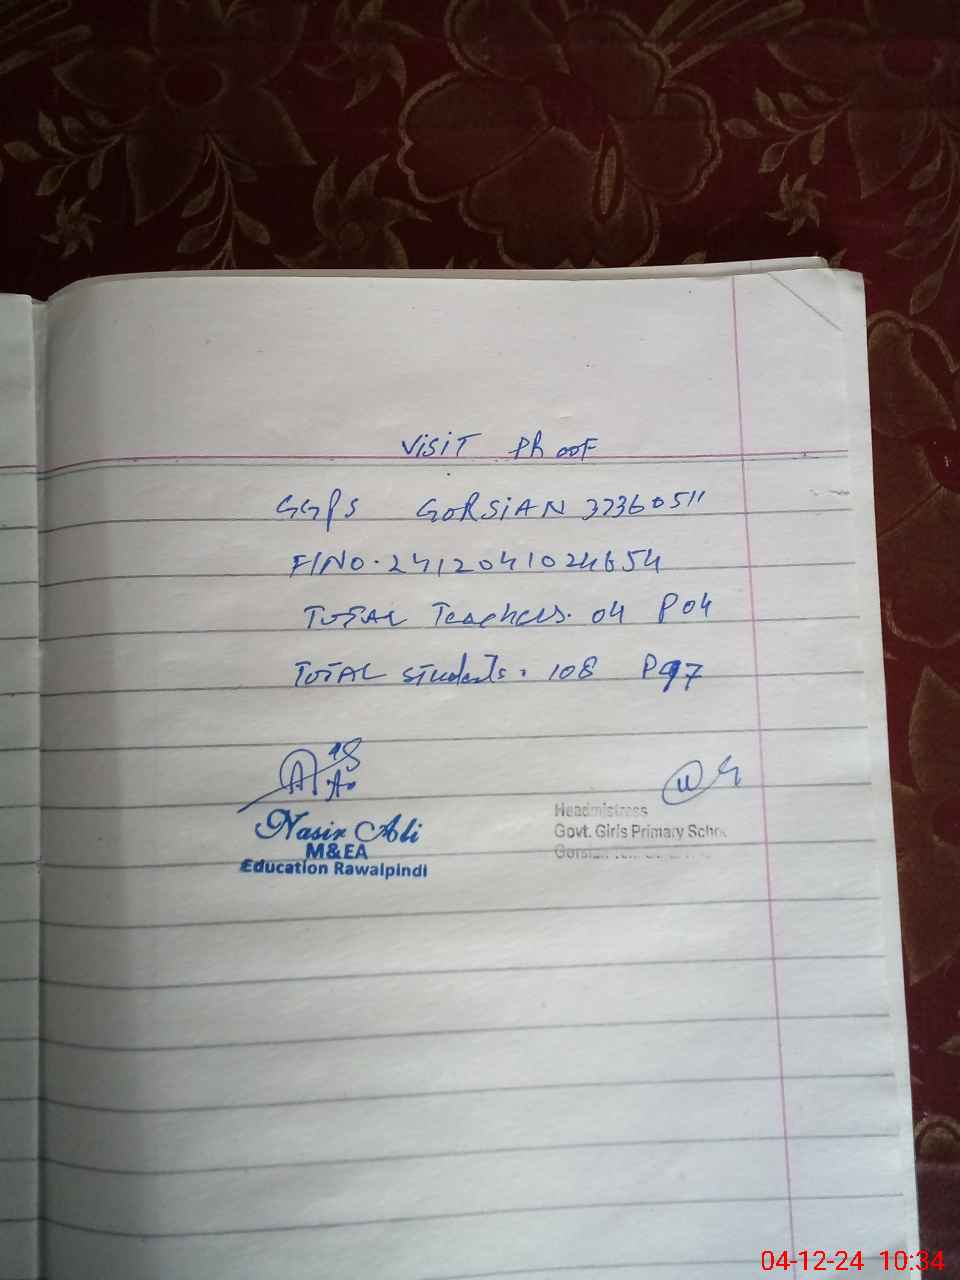 VISIT PhooF
GGPS GORSIAN 37360511
F/NO. 2412041024654
TOTAL Teachers. 04 P04
TOTAL students. 108 P97
Nasir Ali
M&EA
Education Rawalpindi
Headmistress
Govt. Girls Primary Schoo
04-12-24 10:34